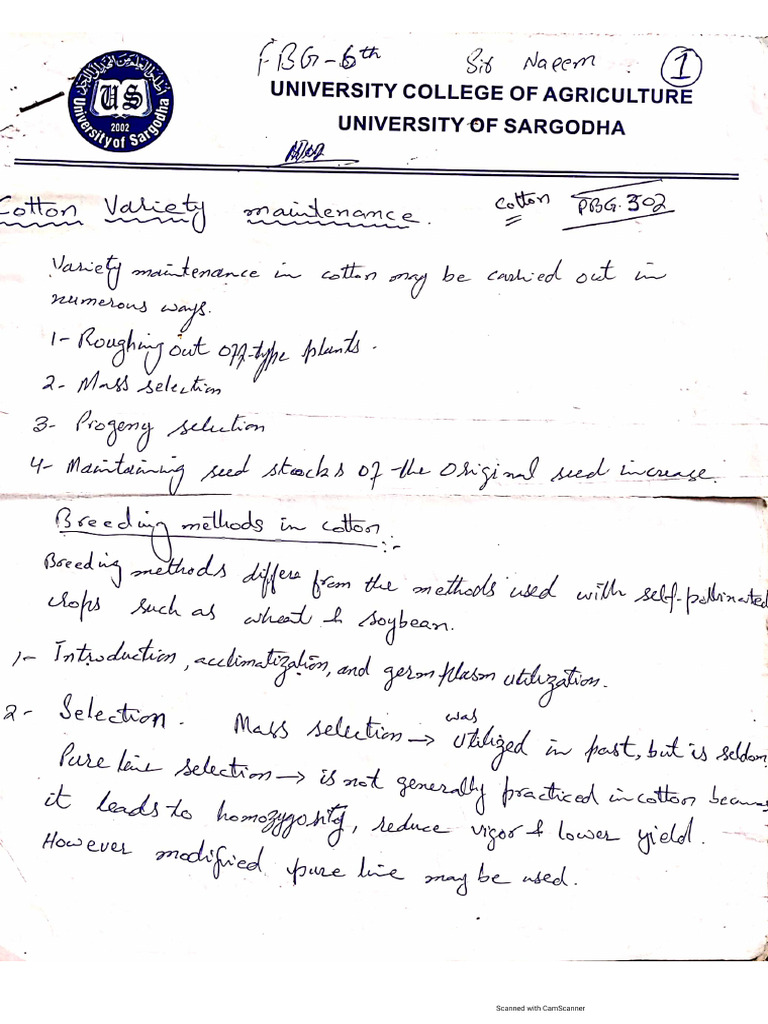 PBG-6th Sir Naeem 1
UNIVERSITY COLLEGE OF AGRICULTURE
UNIVERSITY OF SARGODHA
US
2002
University of Sargodha
Cotton Variety maintenance. Cotton PBG.302
Variety maintenance in cotton may be carried out in
numerous ways.
1- Roughing out off-type plants.
2- Mass selection
3- Progeny selection
4- Maintaining seed stocks of the original seed increase.
Breeding methods in cotton:-
Breeding methods differs from the methods used with self-pollinated
crops such as wheat & soybean.
1- Introduction, acclimatization, and germplasm utilization.
2- Selection. Mass selection → was utilized in past, but is seldom
Pure line selection → is not generally practiced in cotton because
it leads to homozygosity, reduce vigor & lower yield.
However modified pure line may be used.
Scanned with CamScanner